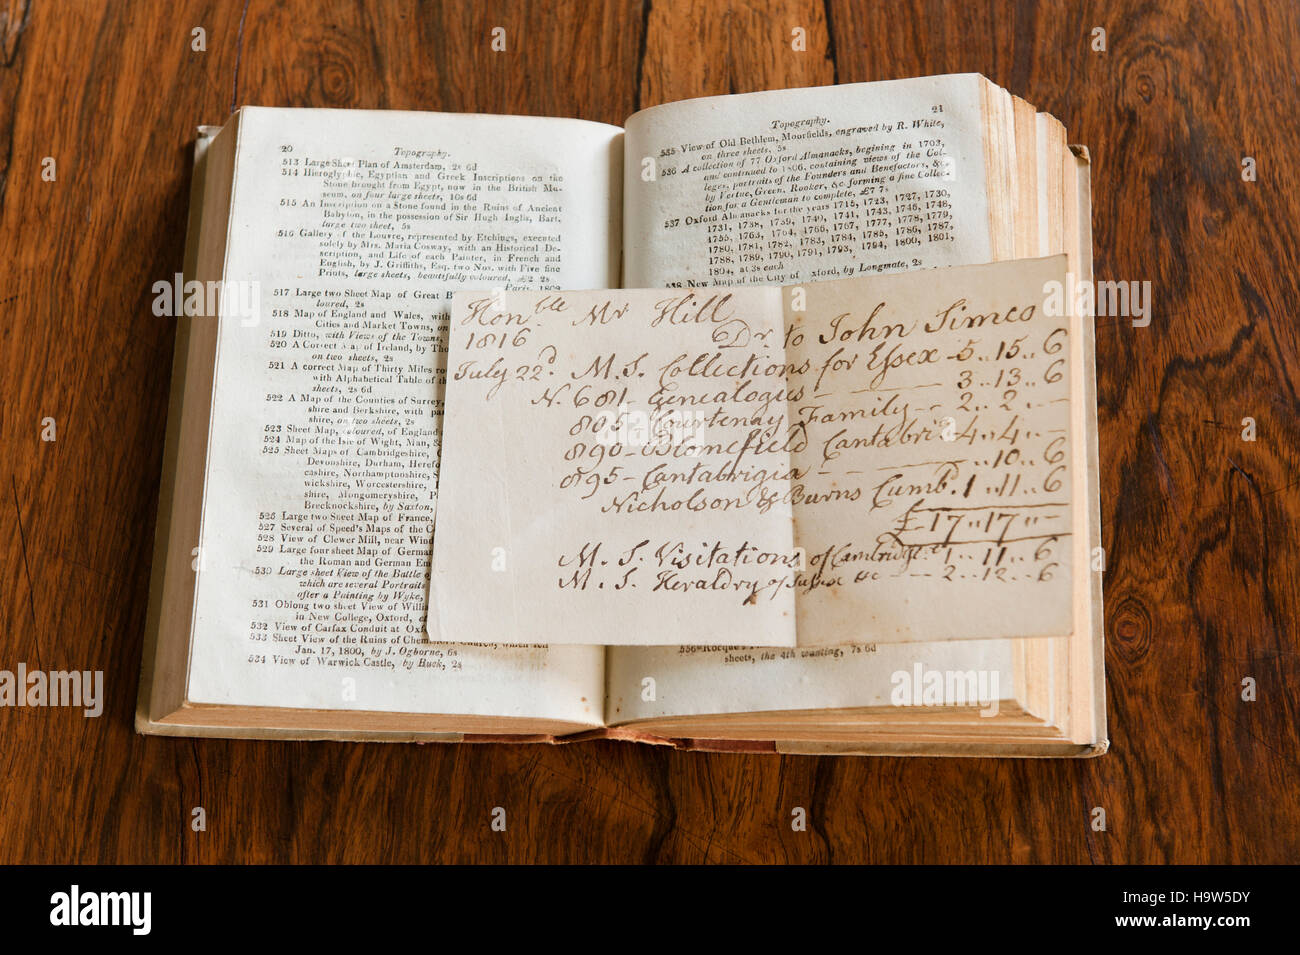 20
Topography.
513 Large Sheet Plan of Amsterdam, 2s 6d
514 Hieroglyphic, Egyptian and Greek Inscriptions on the
Stone brought from Egypt, now in the British Mu-
seum, on four large sheets, 10s 6d
515 An Inscription on a Stone found in the Ruins of Ancient
Babylon, in the possession of Sir Hugh Inglis, Bart.
large two sheet, 5s
516 Gallery of the Louvre, represented by Etchings, executed
solely by Mrs. Maria Cosway, with an Historical De-
scription, and Life of each Painter, in French and
English, by J. Griffiths, Esq. two Nos. with Five fine
Prints, large sheets, beautifully coloured, £2 2s
Paris, 1802
517 Large two Sheet Map of Great B
loured, 2s
518 Map of England and Wales, with
Cities and Market Towns, on
519 Ditto, with Views of the Towns,
520 A Correct Map of Ireland, by Tho
on two sheets, 2s
521 A correct Map of Thirty Miles ro
with Alphabetical Table of th
sheets, 2s 6d
522 A Map of the Counties of Surrey,
shire and Berkshire, with par
shire, on two sheets, 2s
523 Sheet Map, coloured, of England
524 Map of the Isle of Wight, Man, S
525 Sheet Maps of Cambridgeshire, C
Devonshire, Durham, Herefo
cashire, Northamptonshire, S
wickshire, Worcestershire,
shire, Mongomeryshire, P
Brecknockshire, by Saxton,
526 Large two Sheet Map of France,
527 Several of Speed's Maps of the C
528 View of Clewer Mill, near Wind
529 Large four sheet Map of German
the Roman and German Em
530 Large sheet View of the Battle o
which are several Portraits
after a Painting by Wyke,
531 Oblong two sheet View of Willia
in New College, Oxford,
532 View of Carfax Conduit at Oxf
533 Sheet View of the Ruins of Chem Church, which fell
Jan. 17, 1800, by J. Ogborne, 6s
534 View of Warwick Castle, by Buck, 2s
21
Topography.
535 View of Old Bethlem, Moorfields, engraved by R. White,
on three sheets, 5s
536 A collection of 77 Oxford Almanacks, begining in 1703,
and continued to 1806, containing views of the Col-
leges, portraits of the Founders and Benefactors, &c.
by Vertue, Green, Rooker, &c. forming a fine Collec-
tion for a Gentleman to complete, £7 7s
537 Oxford Almanacks for the years 1715, 1723, 1727, 1730,
1731, 1738, 1739, 1740, 1741, 1743, 1746, 1748,
1755, 1763, 1764, 1766, 1767, 1777, 1778, 1779,
1780, 1781, 1782, 1783, 1784, 1785, 1786, 1787,
1788, 1789, 1790, 1791, 1793, 1794, 1800, 1801,
1804, at 3s each
538 New Map of the City of Oxford, by Longmate, 2s
556 Rocque's
sheets, the 4th wanting, 7s 6d
Honble Mr Hill
1816 Dr to John Simco
July 22d M.S. Collections for Essex - 5..15..6
N. 681 - Genealogies - 3..13..6
805 - Courtenay Family - 2..2..-
890 - Blomefield Cantabri 4..4..-
895 - Cantabrigia - ..10..6
Nicholson & Burns Cumbd. 1..11..6
£17..17..-
M. S. Visitations of Cambridge &c 1..11..6
M. S. Heraldry of Sussex &c - 2..12..6
alamy
Image ID: H9W5DY
www.alamy.com